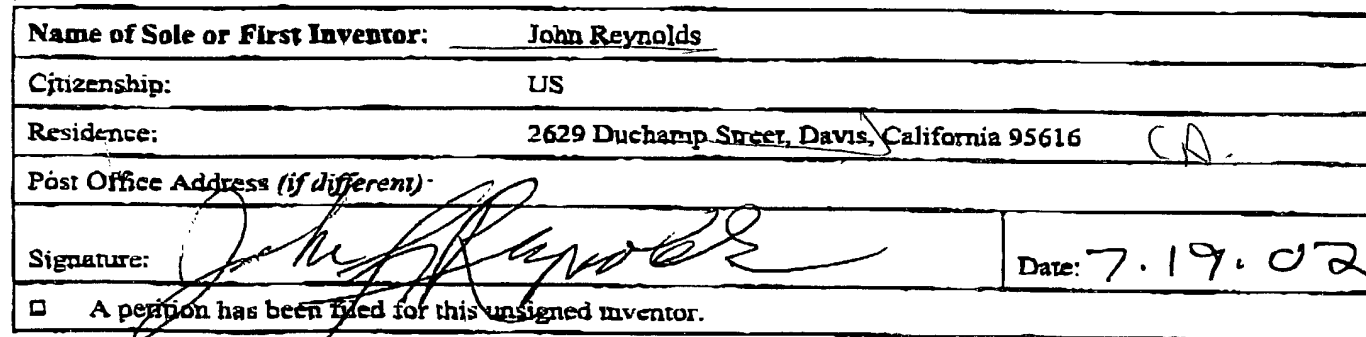 Name of Sole or First Inventor: John Reynolds
Citizenship: US
Residence: 2629 Duchamp Street, Davis, California 95616 CA.
Post Office Address (if different)
Signature: John J Reynolds Date: 7.19.02
□ A petition has been filed for this unsigned inventor.